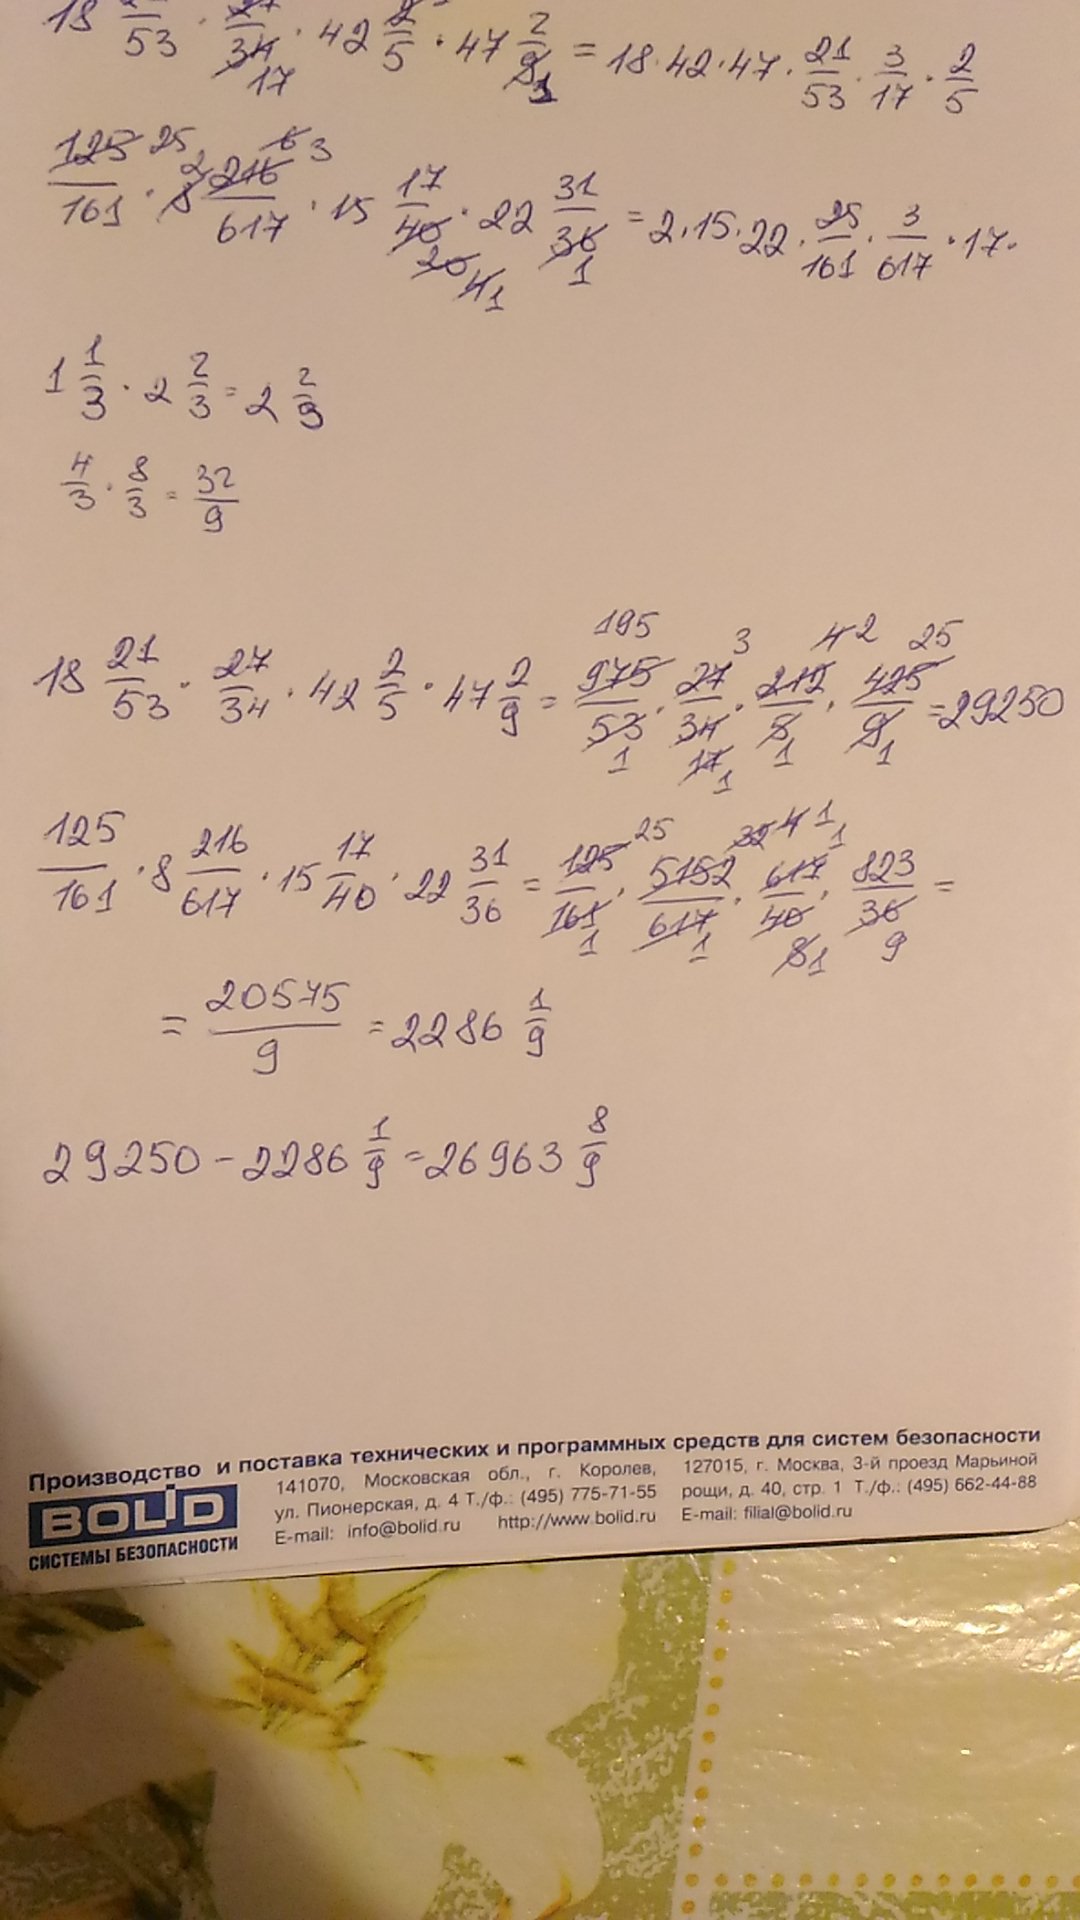 18 21/53 · 27/34 17 · 42 2/5 · 47 2/9 1 = 18·42·47 · 21/53 · 3/17 · 2/5
125 25/161 · 8 2 216 6 3/617 · 15 17/40 20 4 1 · 22 31/36 1 = 2·15·22 · 25/161 · 3/617 · 17·
1 1/3 · 2 2/3 = 2 2/9
4/3 · 8/3 = 32/9
18 21/53 · 27/34 · 42 2/5 · 47 2/9 = 975 195/53 1 · 27 3/34 17 1 · 212 4 2/5 1 · 425 25/9 1 = 29250
125/161 · 8 216/617 · 15 17/40 · 22 31/36 = 125 25/161 1 · 5152 32 4 1/617 1 · 617 1/40 8 1 · 823/36 9 =
= 20575/9 = 2286 1/9
29250 - 2286 1/9 = 26963 8/9
Производство и поставка технических и программных средств для систем безопасности
BOLID
СИСТЕМЫ БЕЗОПАСНОСТИ
141070, Московская обл., г. Королев,
ул. Пионерская, д. 4 Т./ф.: (495) 775-71-55
E-mail: info@bolid.ru http://www.bolid.ru
127015, г. Москва, 3-й проезд Марьиной
рощи, д. 40, стр. 1 Т./ф.: (495) 662-44-88
E-mail: filial@bolid.ru